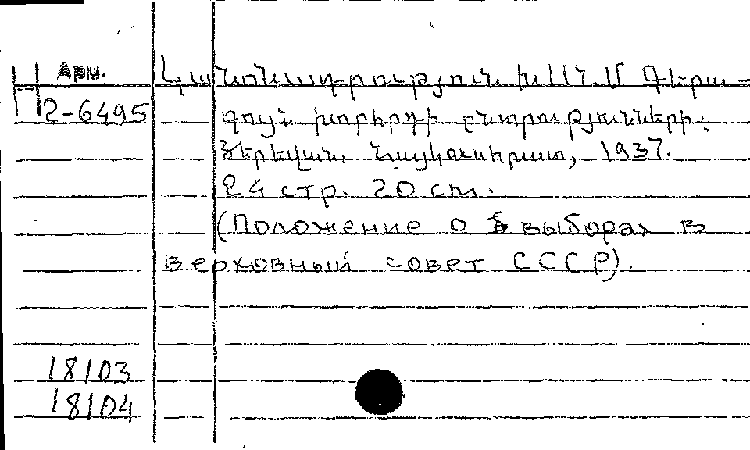 Арм.
Կանոնադրություն ԽՍՍՌՄ Գերա-
Н 2-6495 գույն խորհրդի ընտրությունների.
Երևան, Հայկուսհրատ, 1937.
24 стр. 20 см.
(Положение о выборах в
верховный совет СССР).
18103
18104